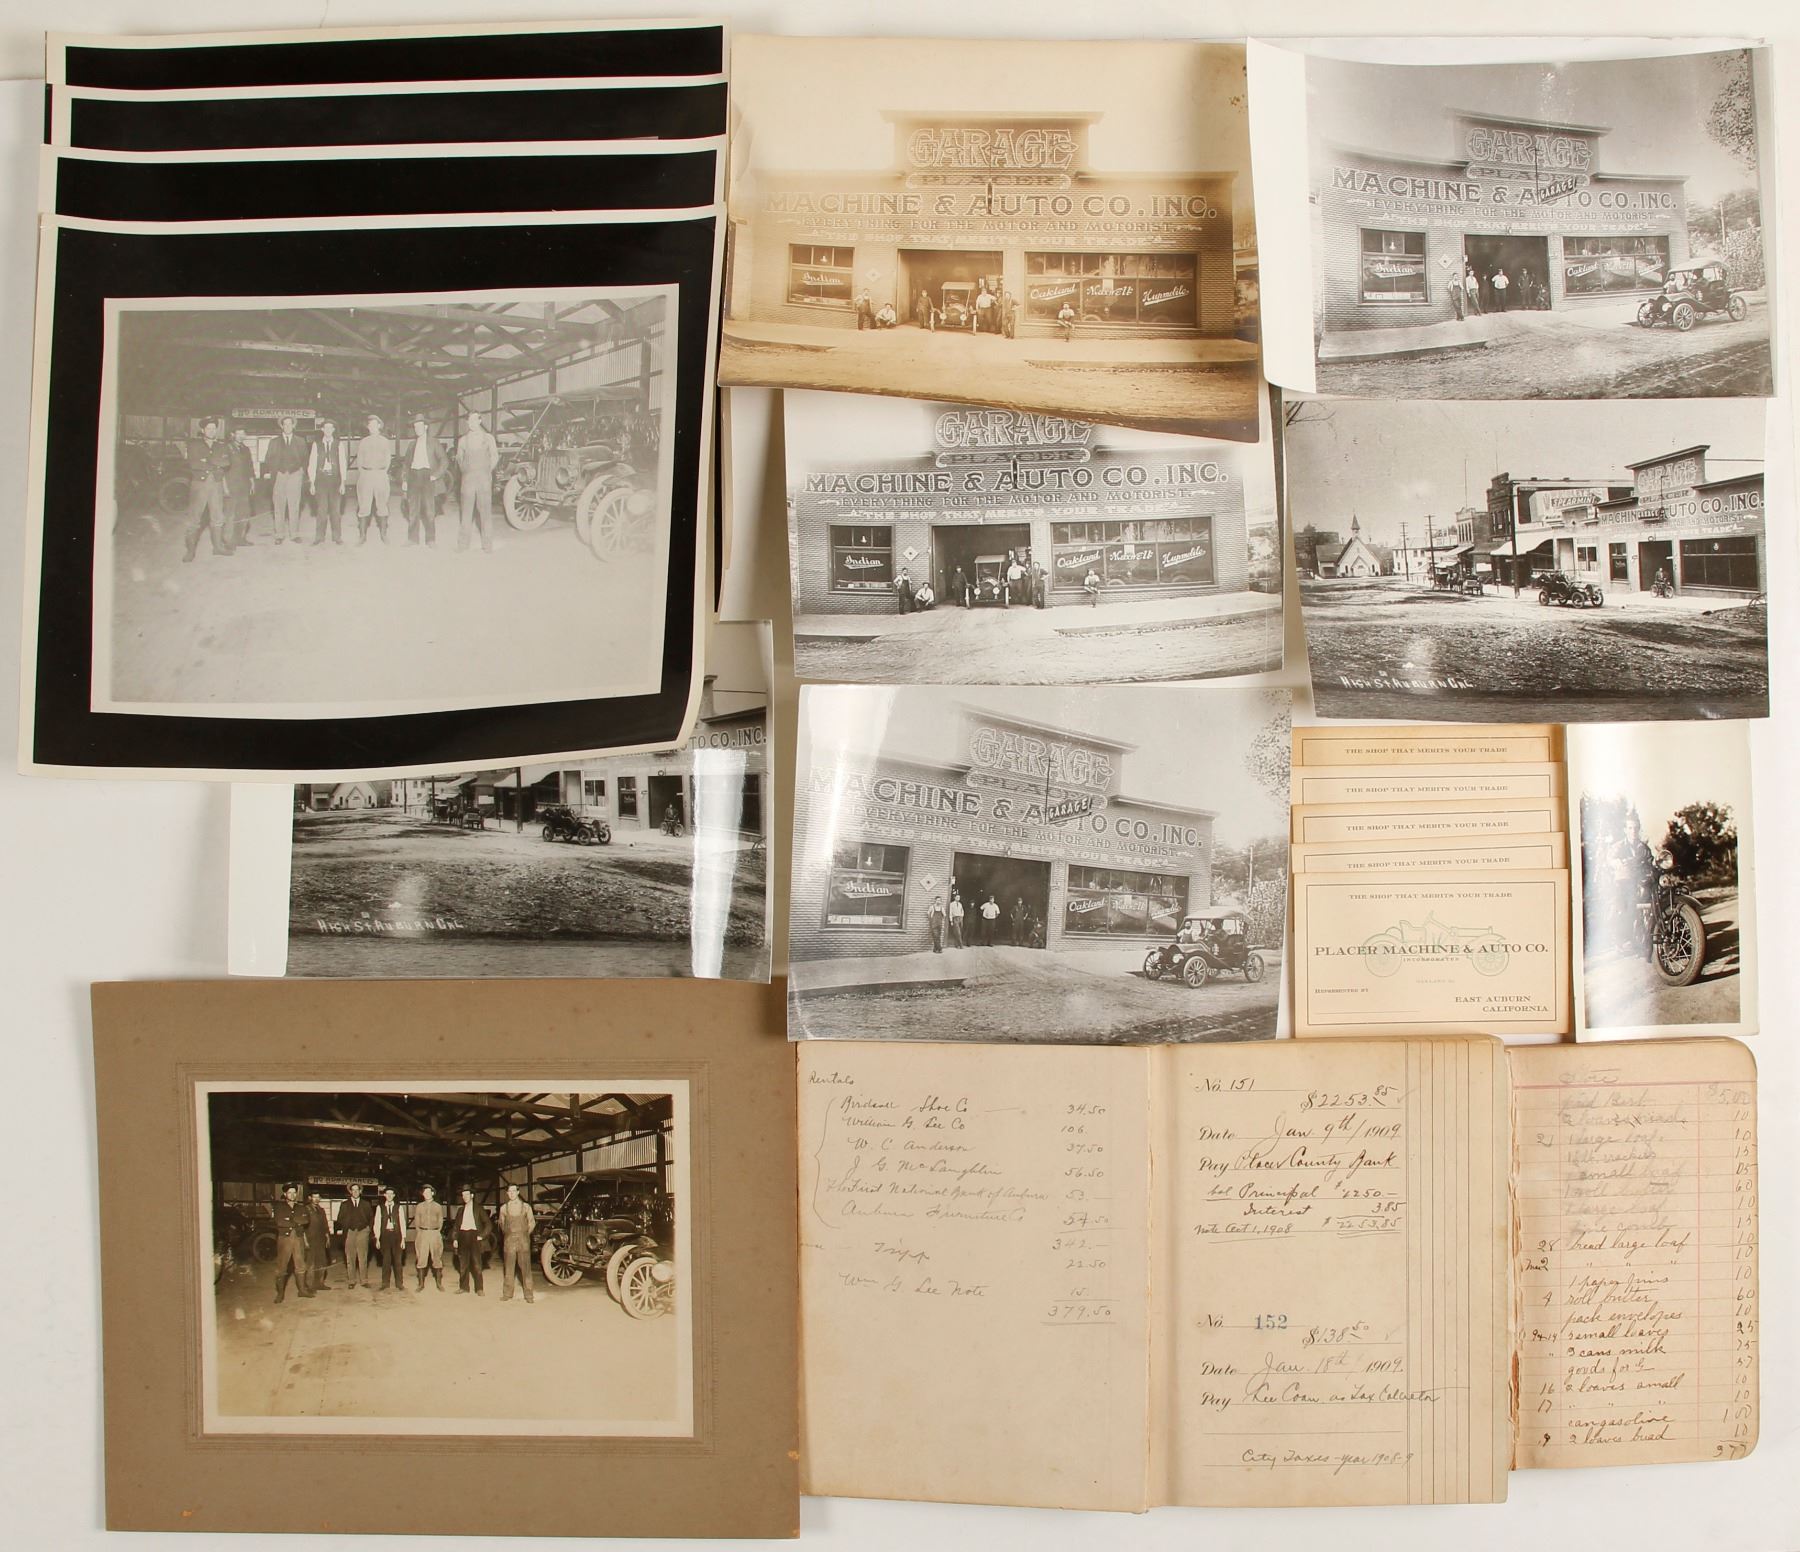 GARAGE
PLACER
MACHINE & AUTO CO. INC.
EVERYTHING FOR THE MOTOR AND MOTORIST.
THE SHOP THAT MERITS YOUR TRADE
Indian
Oakland Maxwell Hupmobile
GARAGE
PLACER
MACHINE & A TO CO. INC.
GARAGE
EVERYTHING FOR THE MOTOR AND MOTORIST.
THE SHOP THAT MERITS YOUR TRADE
Indian
Oakland Maxwell Hupmobile
NO ADMITTANCE
GARAGE
PLACER
MACHINE & AUTO CO. INC.
EVERYTHING FOR THE MOTOR AND MOTORIST.
THE SHOP THAT MERITS YOUR TRADE
Indian
Oakland Maxwell Hupmobile
SPEARMINT
GARAGE
PLACER
MACHIN UTO CO. INC.
HIGH ST. AUBURN CAL
TO CO. INC.
HIGH ST. AUBURN CAL
GARAGE
PLACE
MACHINE & A TO CO. INC.
GARAGE
EVERYTHING FOR THE MOTOR AND MOTORIST.
THAT MERITS YOUR TRADE
Indian
Oakland Maxwell Hupmobile
THE SHOP THAT MERITS YOUR TRADE
THE SHOP THAT MERITS YOUR TRADE
THE SHOP THAT MERITS YOUR TRADE
THE SHOP THAT MERITS YOUR TRADE
THE SHOP THAT MERITS YOUR TRADE
PLACER MACHINE & AUTO CO.
INCORPORATED
REPRESENTED BY
EAST AUBURN
CALIFORNIA
NO ADMITTANCE
Rentals
Birdsall Shoe Co 34.50
William G. Lee Co 106.
W. C. Anderson 37.50
J. G. McLaughlin 56.50
The First National Bank of Auburn 53.—
Auburn Furniture Co 54.50
342.—
Tripp 22.50
Wm G. Lee Note 15.
379.50
No. 151
$2253.85
Date Jan. 9th/1909
Pay Placer County Bank
bal Principal $2250.—
Interest 3.85
Note Oct 1, 1908 $2253.85
No. 152
$138.50
Date Jan. 18th/1909.
Pay Lee Coan. as Tax Collector
City Taxes - year 1908-9
$5.00
2 loaves 10
21 1 large loaf 10
crackers 15
1 small loaf 05
1 roll butter 60
1 large loaf 10
comb 15
28 bread large loaf 10
" " " 10
1 paper pins 10
4 roll butter 60
pack envelopes 10
3 small loaves 25
" 3 cans milk 25
goods for G
16 2 loaves small 10
17 " " " 10
can gasoline 1 00
9 2 loaves bread 10